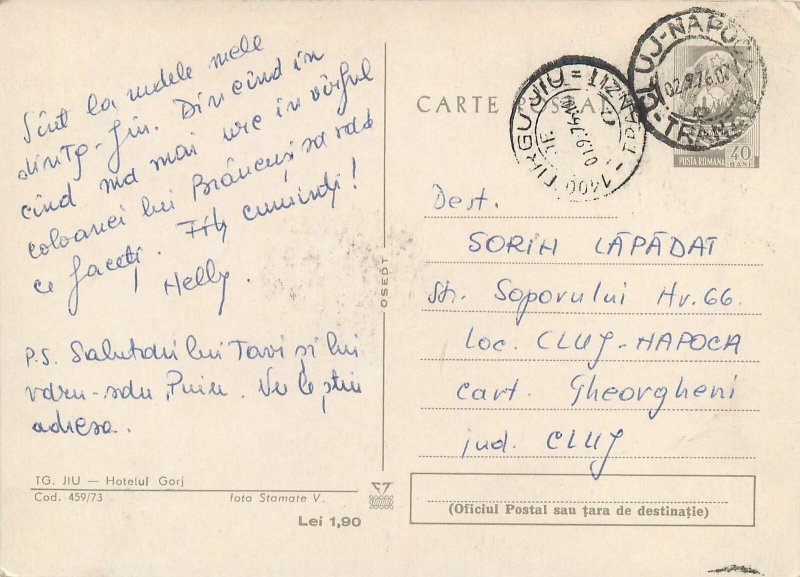 Sînt la rudele mele
din Tg-Jiu. Din cînd în
cînd mă mai urc în vîrful
coloanei lui Brâncuşi să văd
ce faceţi. Fiţi cuminţi!
Helly.
P.S. Salutări lui Tavi şi lui
văru-său Puiu. Nu le ştiu
adresa.
TG. JIU — Hotelul Gorj
Cod. 459/73 foto Stamate V.
Lei 1,90
OSEDT
CARTE POSTALĂ
1400 TIRGU JIU
TRANZIT
01.9.76
CLUJ-NAPOCA
02.9.76.07
POSTA ROMANA 40 BANI
Dest.
SORIN LĂPĂDAT
Str. Soporului Nr. 66.
Loc. CLUJ-NAPOCA
Cart. Gheorgheni
jud. CLUJ
(Oficiul Postal sau ţara de destinaţie)